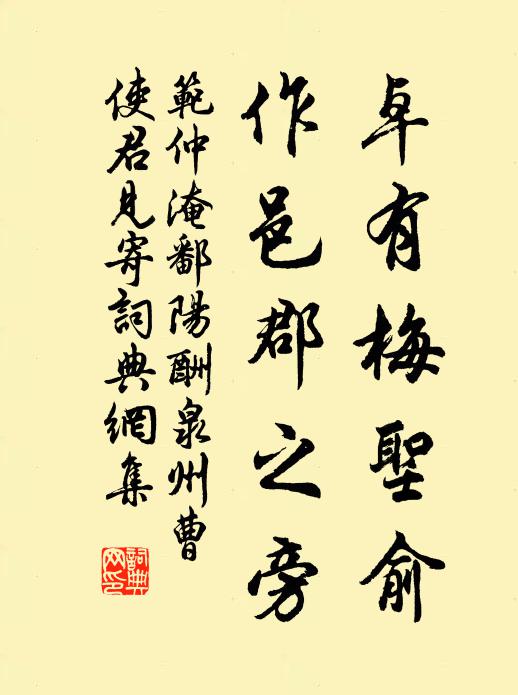 卓有梅聖俞
作邑郡之旁
範仲淹鄱陽酬泉州曹
使君見寄詞典網集
詞典网印